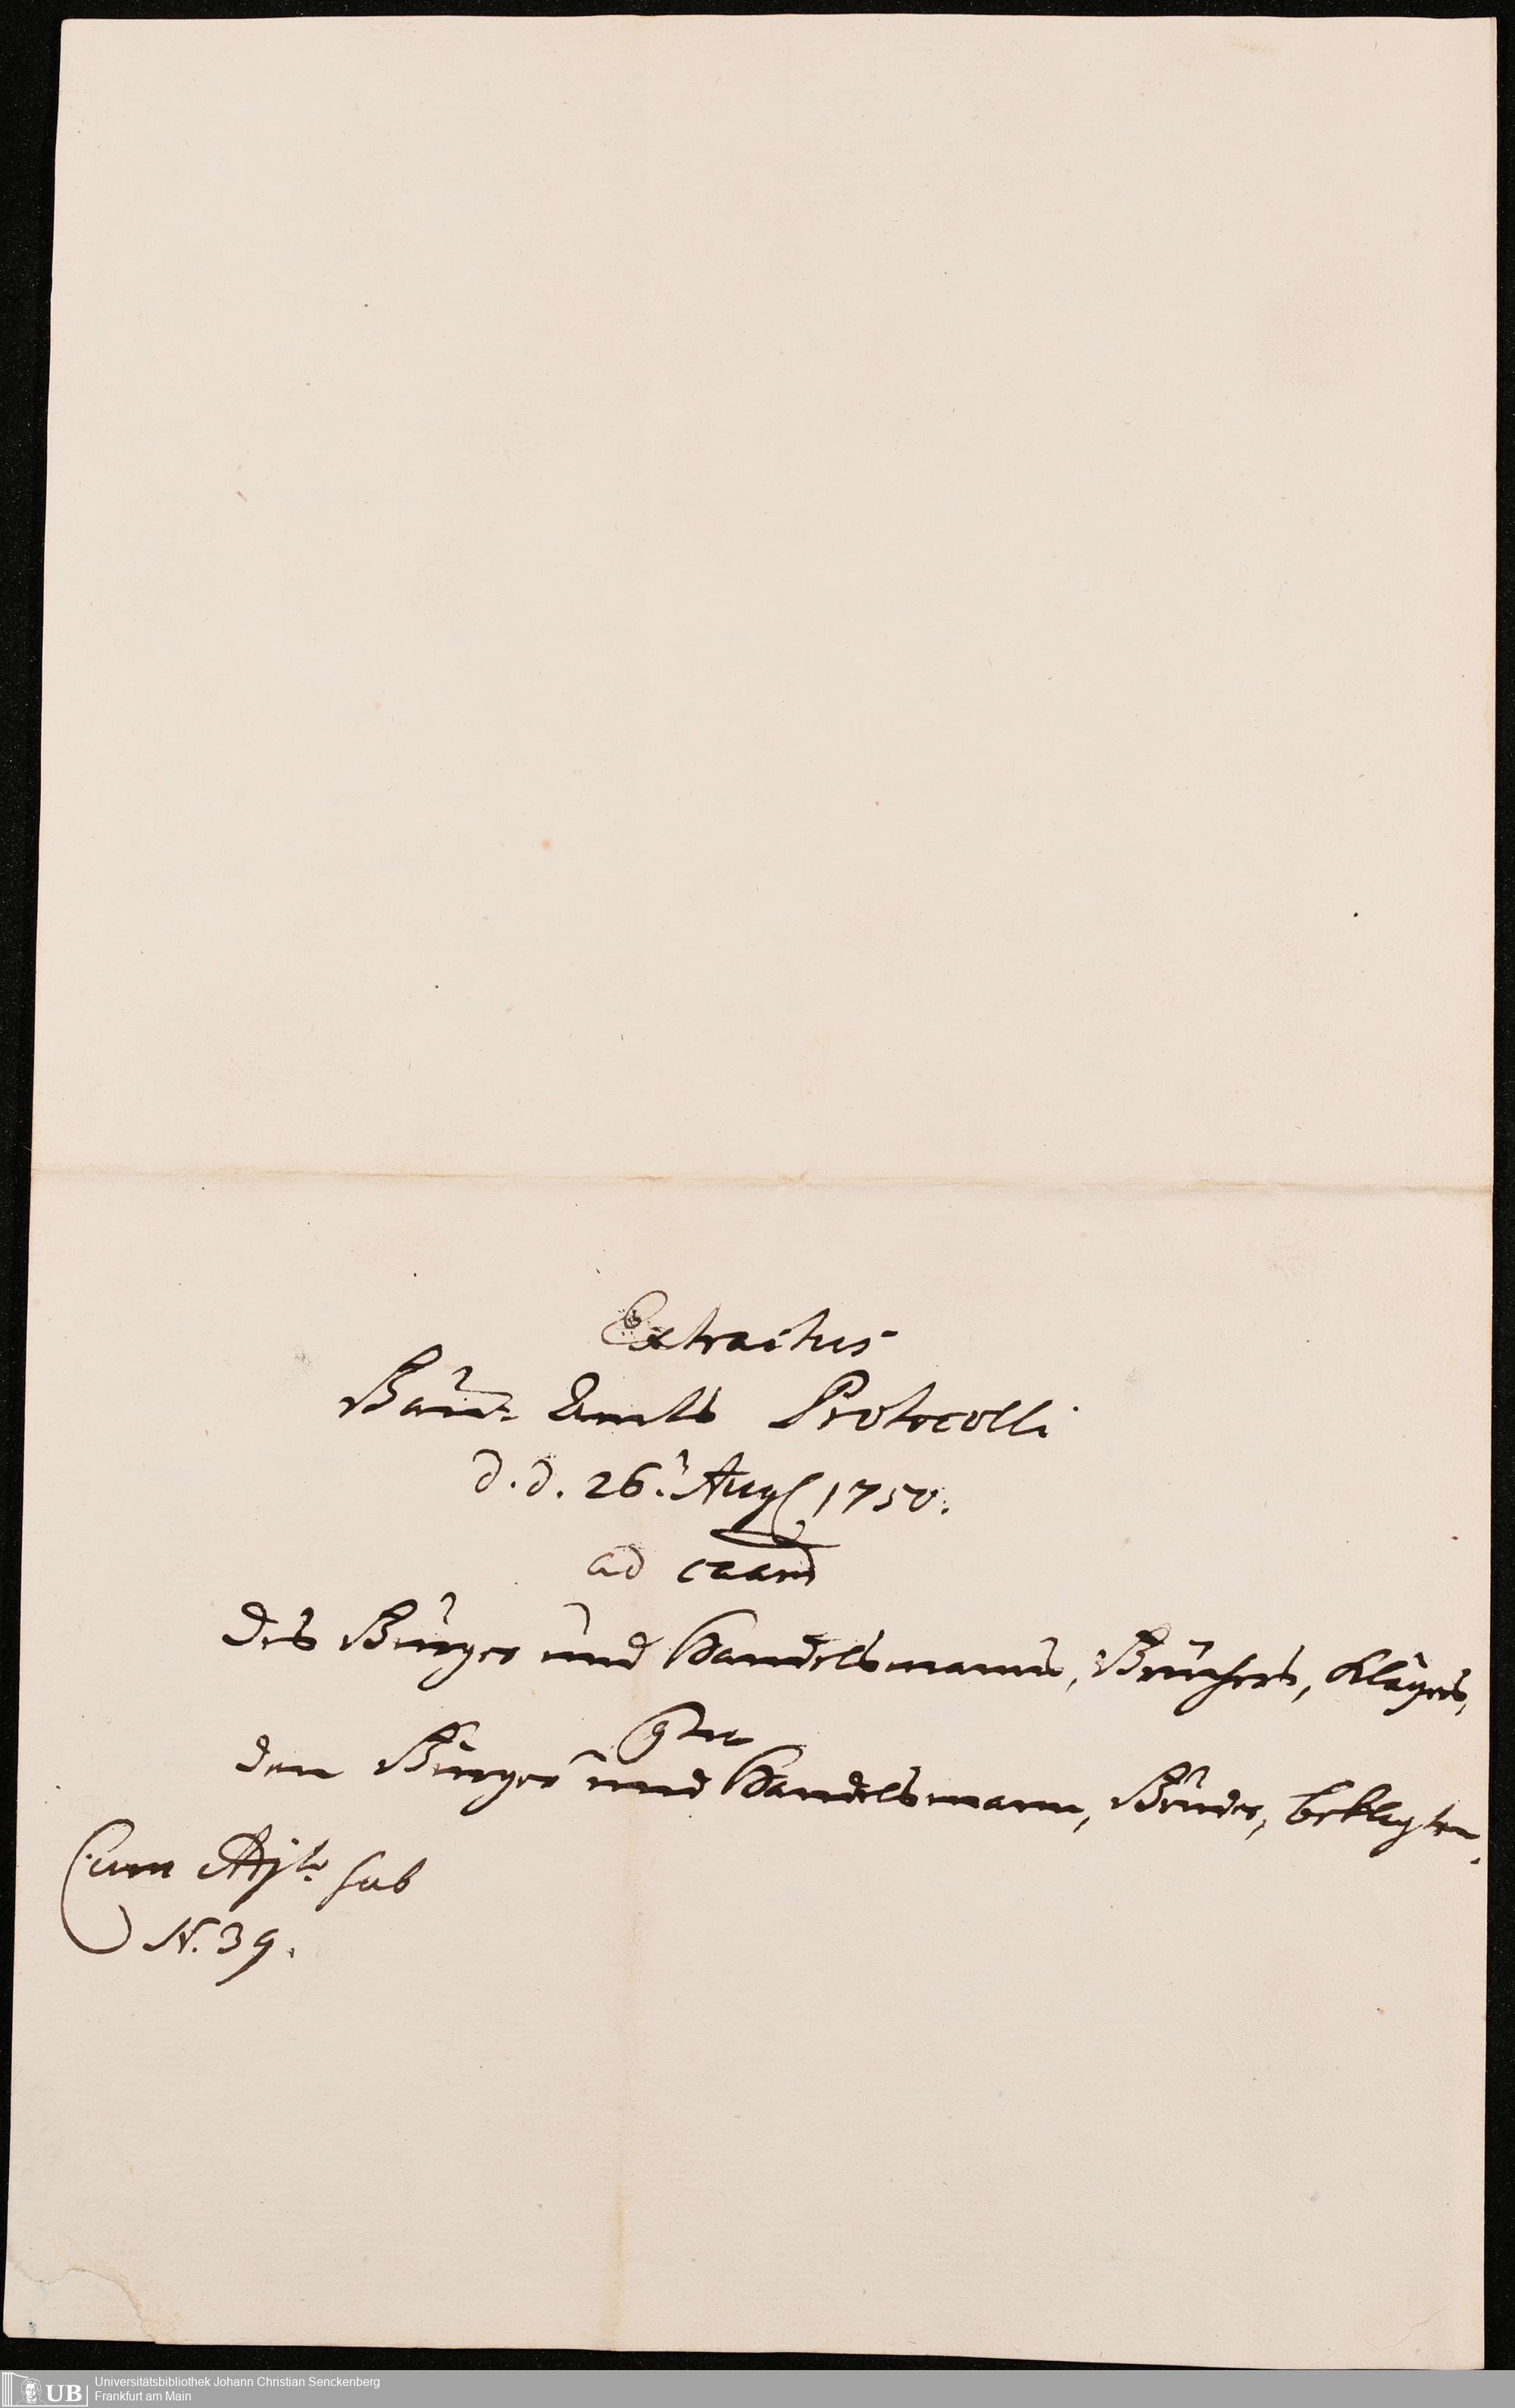 Extractus
Bau- Amts Protocolli
d. d. 26. Aug. 1750.
ad caam
des Burger und Handelsmanns, Kläger,
ctra
den Burger und Handelsmann, beklagten.
Cum Adj. sub
N. 39.
UB
Universitätsbibliothek Johann Christian Senckenberg
Frankfurt am Main